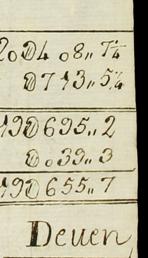 20Ð4 08,, 7¼
Ð713,, 5¼
19Ð695,, 2
Ð.39,, 3
19Ð655,, 7
Deuen